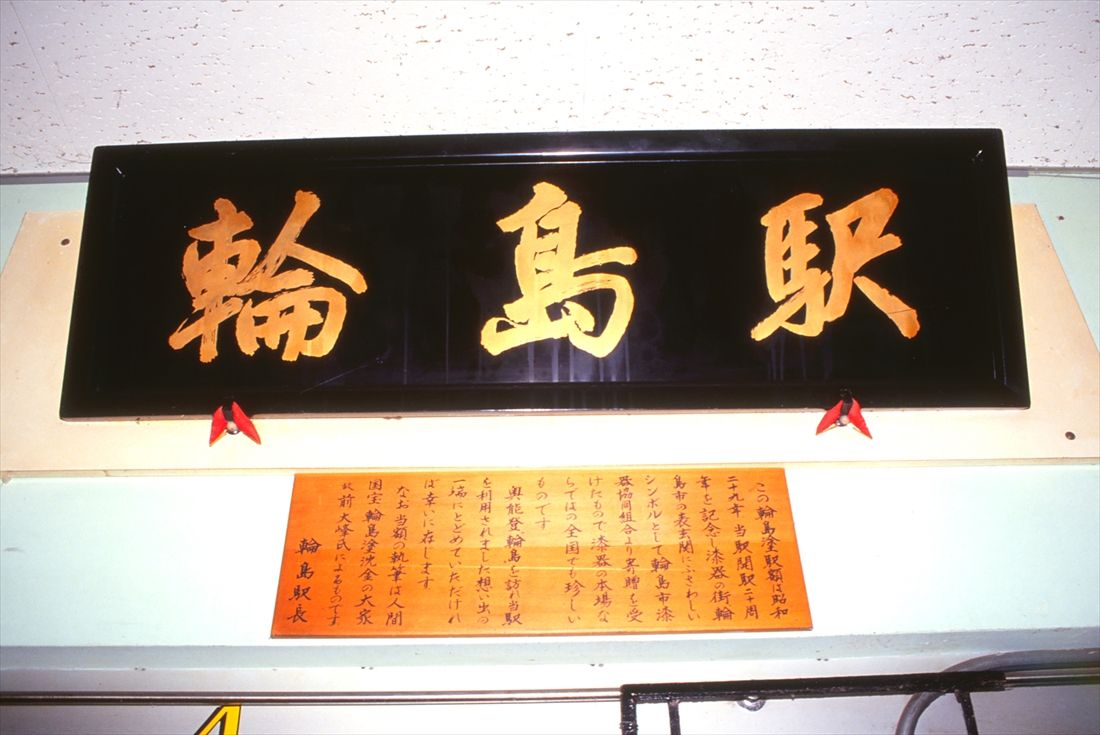 輪島駅
この輪島塗駅額は昭和
二十九年 当駅開駅二十周
年を記念し漆器の街輪
島市の表玄関にふさわしい
シンボルとして輪島市漆
器協同組合より寄贈を受
けたもので漆器の本場な
らではの全国でも珍しい
ものです
奥能登輪島を訪れ当駅
を利用されました想い出の
一端にとどめていただけれ
ば幸いに存じます
なお当額の執筆は人間
国宝輪島塗沈金の大家
故前大峰氏によるものです
輪島駅長
4